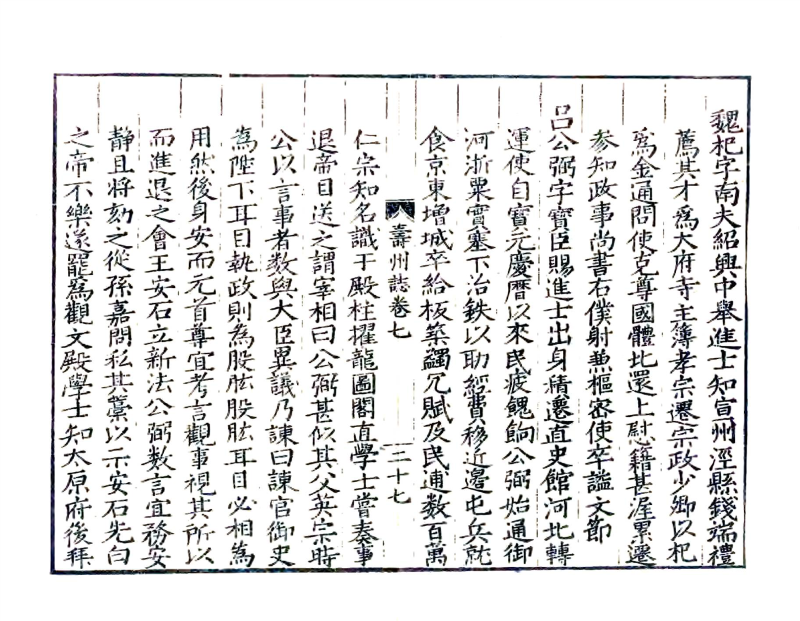 魏杞字南夫紹興中舉進士知宣州涇縣錢端禮
薦其才爲大府寺主簿孝宗遷宗政少卿以杞
爲金通問使克尊國體比還上慰籍甚渥累遷
參知政事尚書右僕射兼樞密使卒謚文節
吕公弼字寶臣賜進士出身積遷直史館河北轉
運使自寶元慶曆以來民疲餽餉公弼始通御
河浙粟實塞下冶鉄以助經費移近邊屯兵就
食京東增城卒給板築蠲冗賦及民逋数百萬
壽州誌卷七
二十七
仁宗知名識于殿柱擢龍圖閣直學士嘗奏事
退帝目送之謂宰相曰公弼甚似其父英宗時
公以言事者数與大臣異議乃諫曰諫官御史
為陛下耳目執政則為股肱股肱耳目必相為
用然後身安而元首尊宜考言觀事視其所以
而進退之會王安石立新法公弼数言宜務安
静且將劾之從孫嘉問私其藁以示安石先白
之帝不樂遂罷爲觀文殿學士知太原府後拜